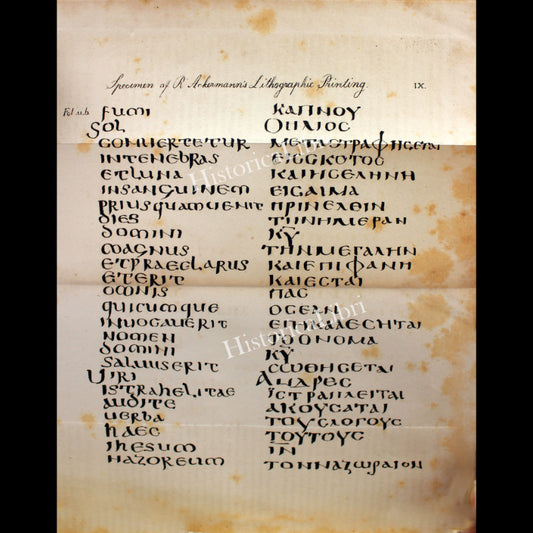 Specimen of R. Ackermann's Lithographic Printing. IX.
fumi ΚΑΠΝΟΥ
Sol ΟΗΛΙΟΣ
conuertetur ΜΕΤΑΣΤΡΑΦΗΣΕΤΑΙ
intenebras ΕΙΣΣΚΟΤΟΣ
etluna ΚΑΙΗΣΕΛΗΝΗ
insanguinem ΕΙΣΑΙΜΑ
priusquamuenit ΠΡΙΝΕΛΘΙΝ
dies ΤΗΝΗΜΕΡΑΝ
domini ΚΥ
magnus ΤΗΝΜΕΓΑΛΗΝ
etpraeclarus ΚΑΙΕΠΙΦΑΝΗ
eterit ΚΑΙΕΣΤΑΙ
omnis ΠΑΣ
quicumque ΟΣΕΑΝ
inuocauerit ΕΠΙΚΑΛΕΣΗΤΑΙ
nomen ΤΟΟΝΟΜΑ
domini ΚΥ
saluuserit ΣΩΘΗΣΕΤΑΙ
Uiri ΑΝΔΡΕΣ
istrahelitae ΪΣΤΡΑΗΛΕΙΤΑΙ
audite ΑΚΟΥΣΑΤΑΙ
uerba ΤΟΥΣΛΟΓΟΥΣ
haec ΤΟΥΤΟΥΣ
ihesum ΙΝ
nazoreum ΤΟΝΝΑΖΩΡΑΙΟΝ
HistoricaLibri
HistoricaLibri